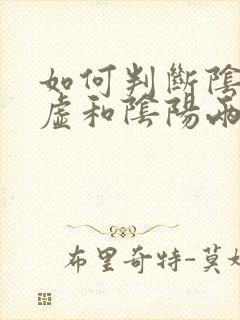 如何判斷陰
虛和陰陽兩
布里奇特-莫